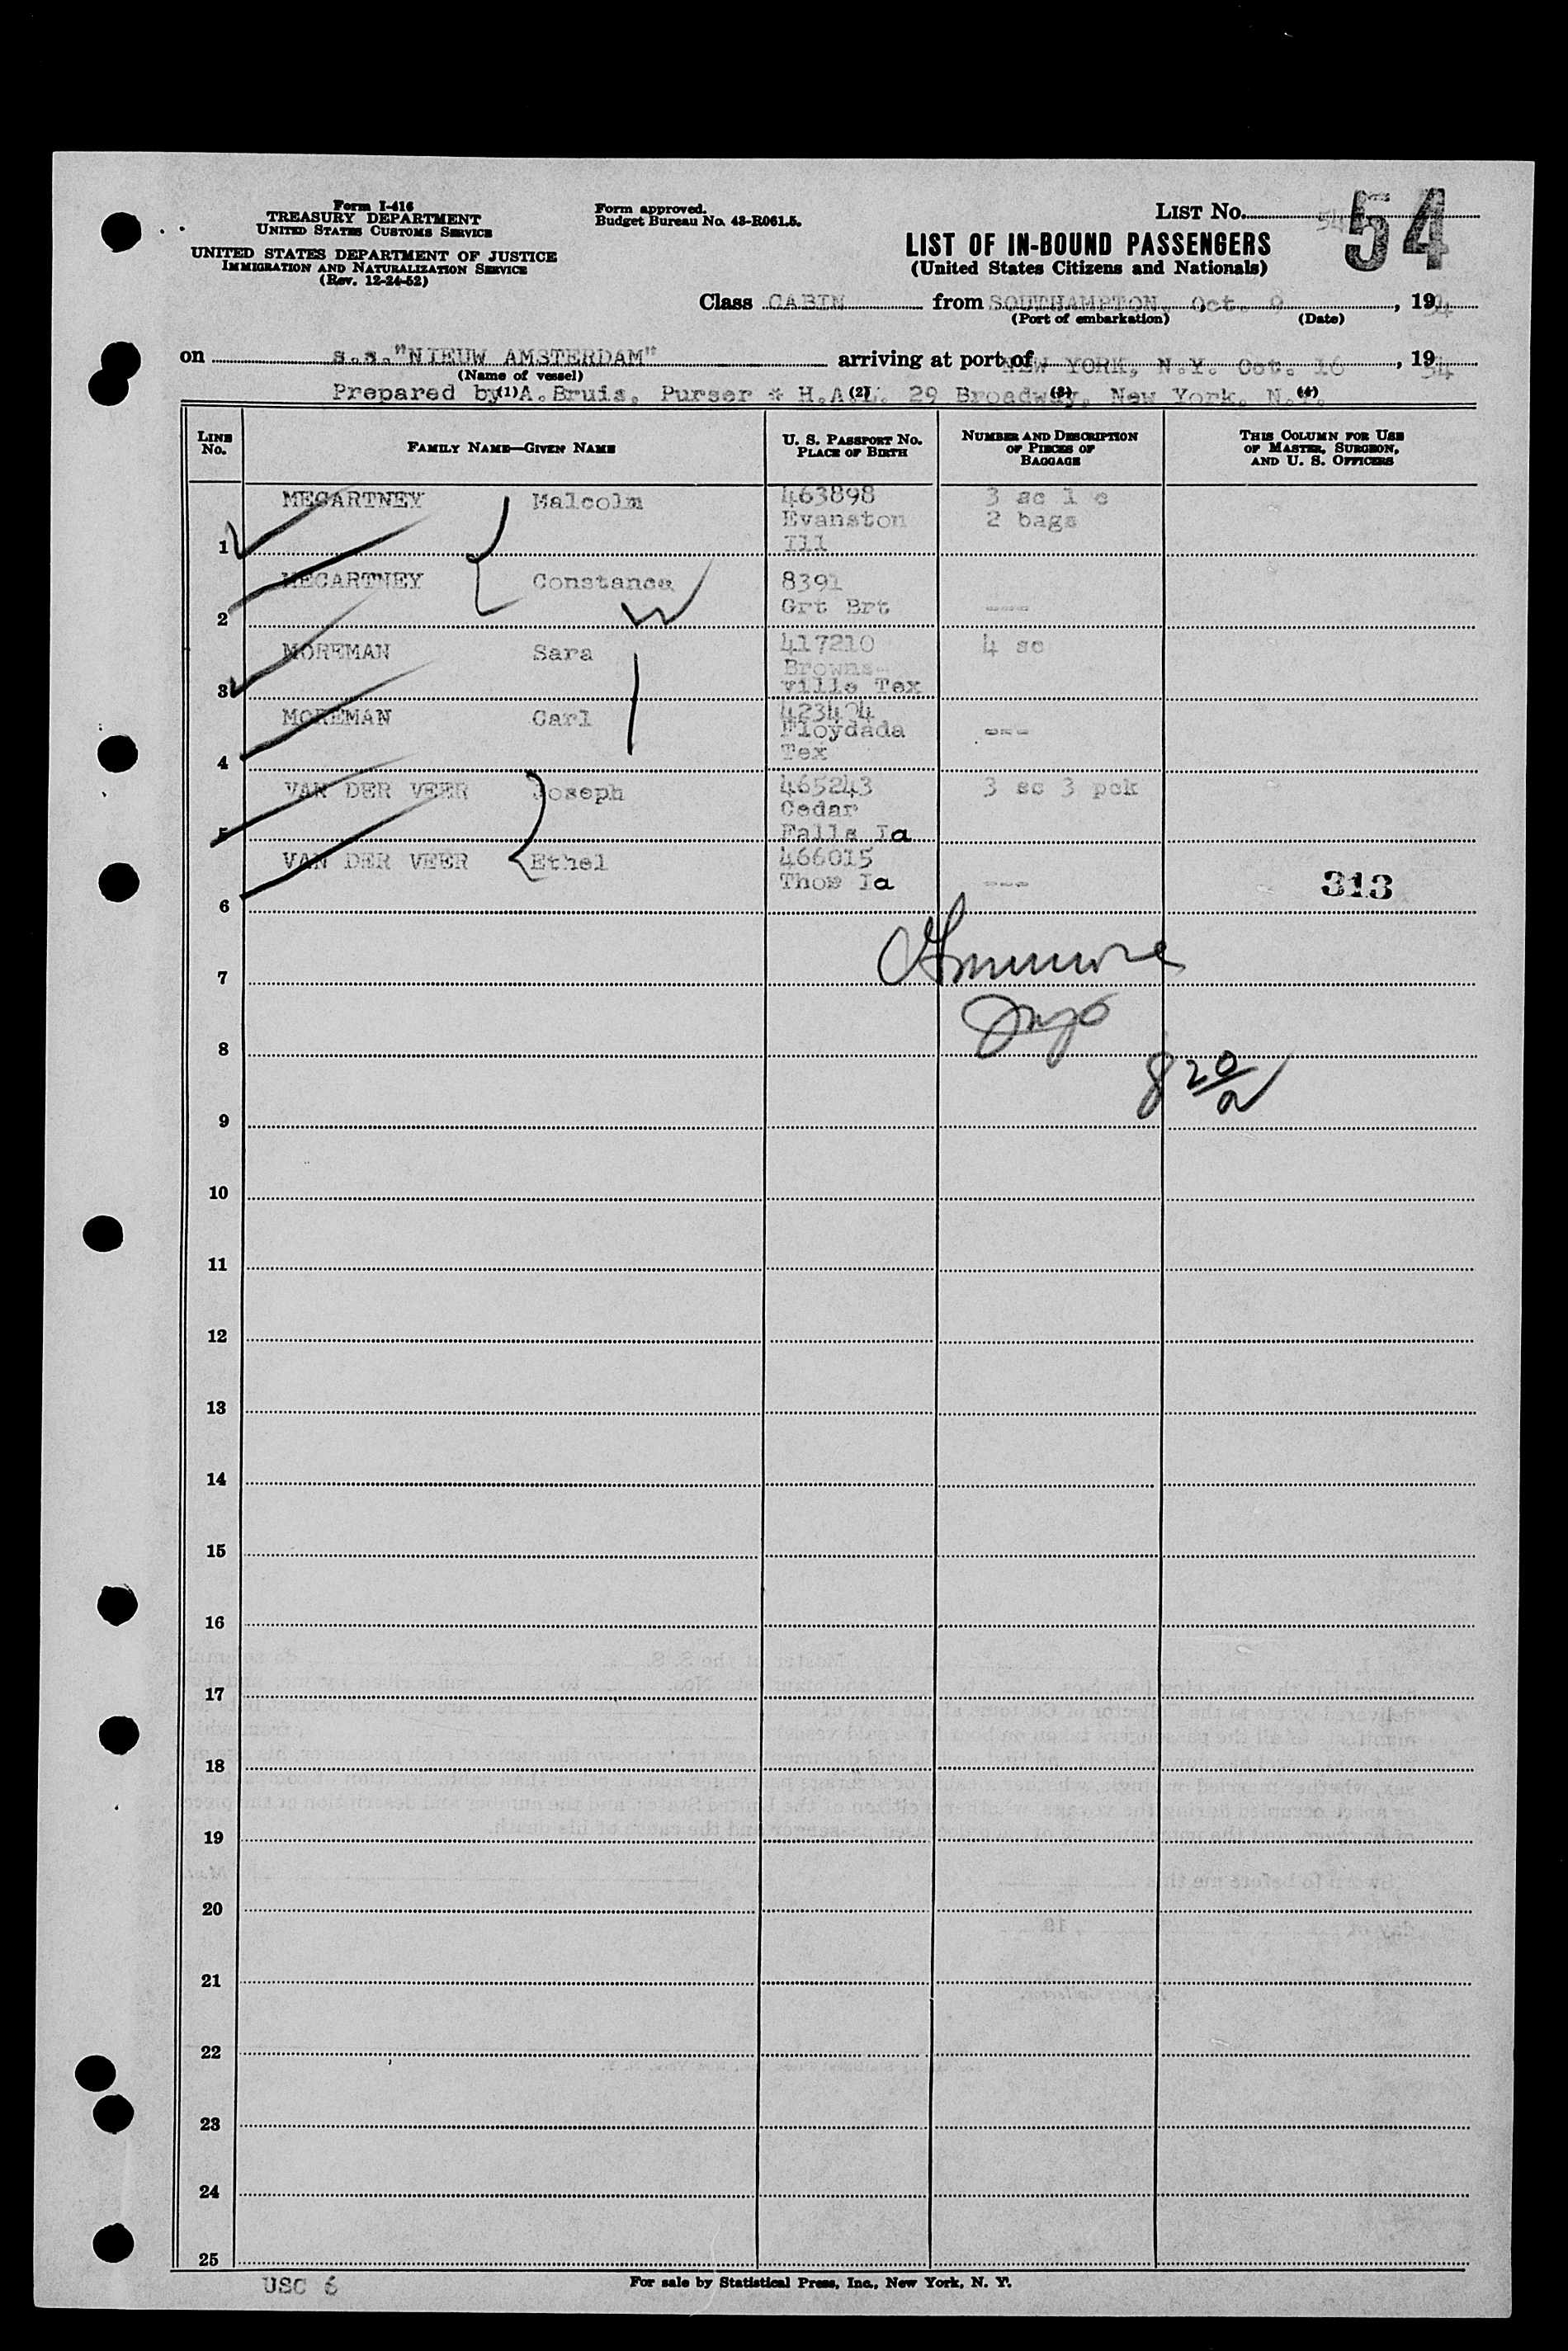 Form I-416
TREASURY DEPARTMENT
UNITED STATES CUSTOMS SERVICE
UNITED STATES DEPARTMENT OF JUSTICE
IMMIGRATION AND NATURALIZATION SERVICE
(Rev. 12-24-52)
Form approved.
Budget Bureau No. 43-R061.5.
LIST No. 54
LIST OF IN-BOUND PASSENGERS
(United States Citizens and Nationals)
Class CABIN from SOUTHAMPTON, Oct. 9, 1954
(Port of embarkation) (Date)
on s.s."NIEUW AMSTERDAM" arriving at port of NEW YORK, N.Y. Oct. 16, 1954
(Name of vessel)
Prepared by (1) A.Bruis, Purser * H.A.L. (2) 29 Broadway, (3) New York, N.Y. (4)
LINE No. FAMILY NAME—GIVEN NAME U. S. PASSPORT No. PLACE OF BIRTH NUMBER AND DESCRIPTION OF PIECES OF BAGGAGE THIS COLUMN FOR USE OF MASTER, SURGEON, AND U. S. OFFICERS
MEGARTNEY Malcolm 463898 3 sc 1 c
Evanston 2 bags
1 Ill
MECARTNEY Constance 8391
2 Grt Brt ---
MOREMAN Sara 417210 4 sc
Browns-
3 ville Tex
MOREMAN Carl 423404
Floydada ---
4 Tex
VAN DER VEER Joseph 465243 3 sc 3 pck
Cedar
5 Falls Ia
VAN DER VEER Ethel 466015
Thow Ia --- 313
6
7
8
8 20/a
9
10
11
12
13
14
15
16
17
18
19
20
21
22
23
24
25
USC 6
For sale by Statistical Press, Inc., New York, N. Y.